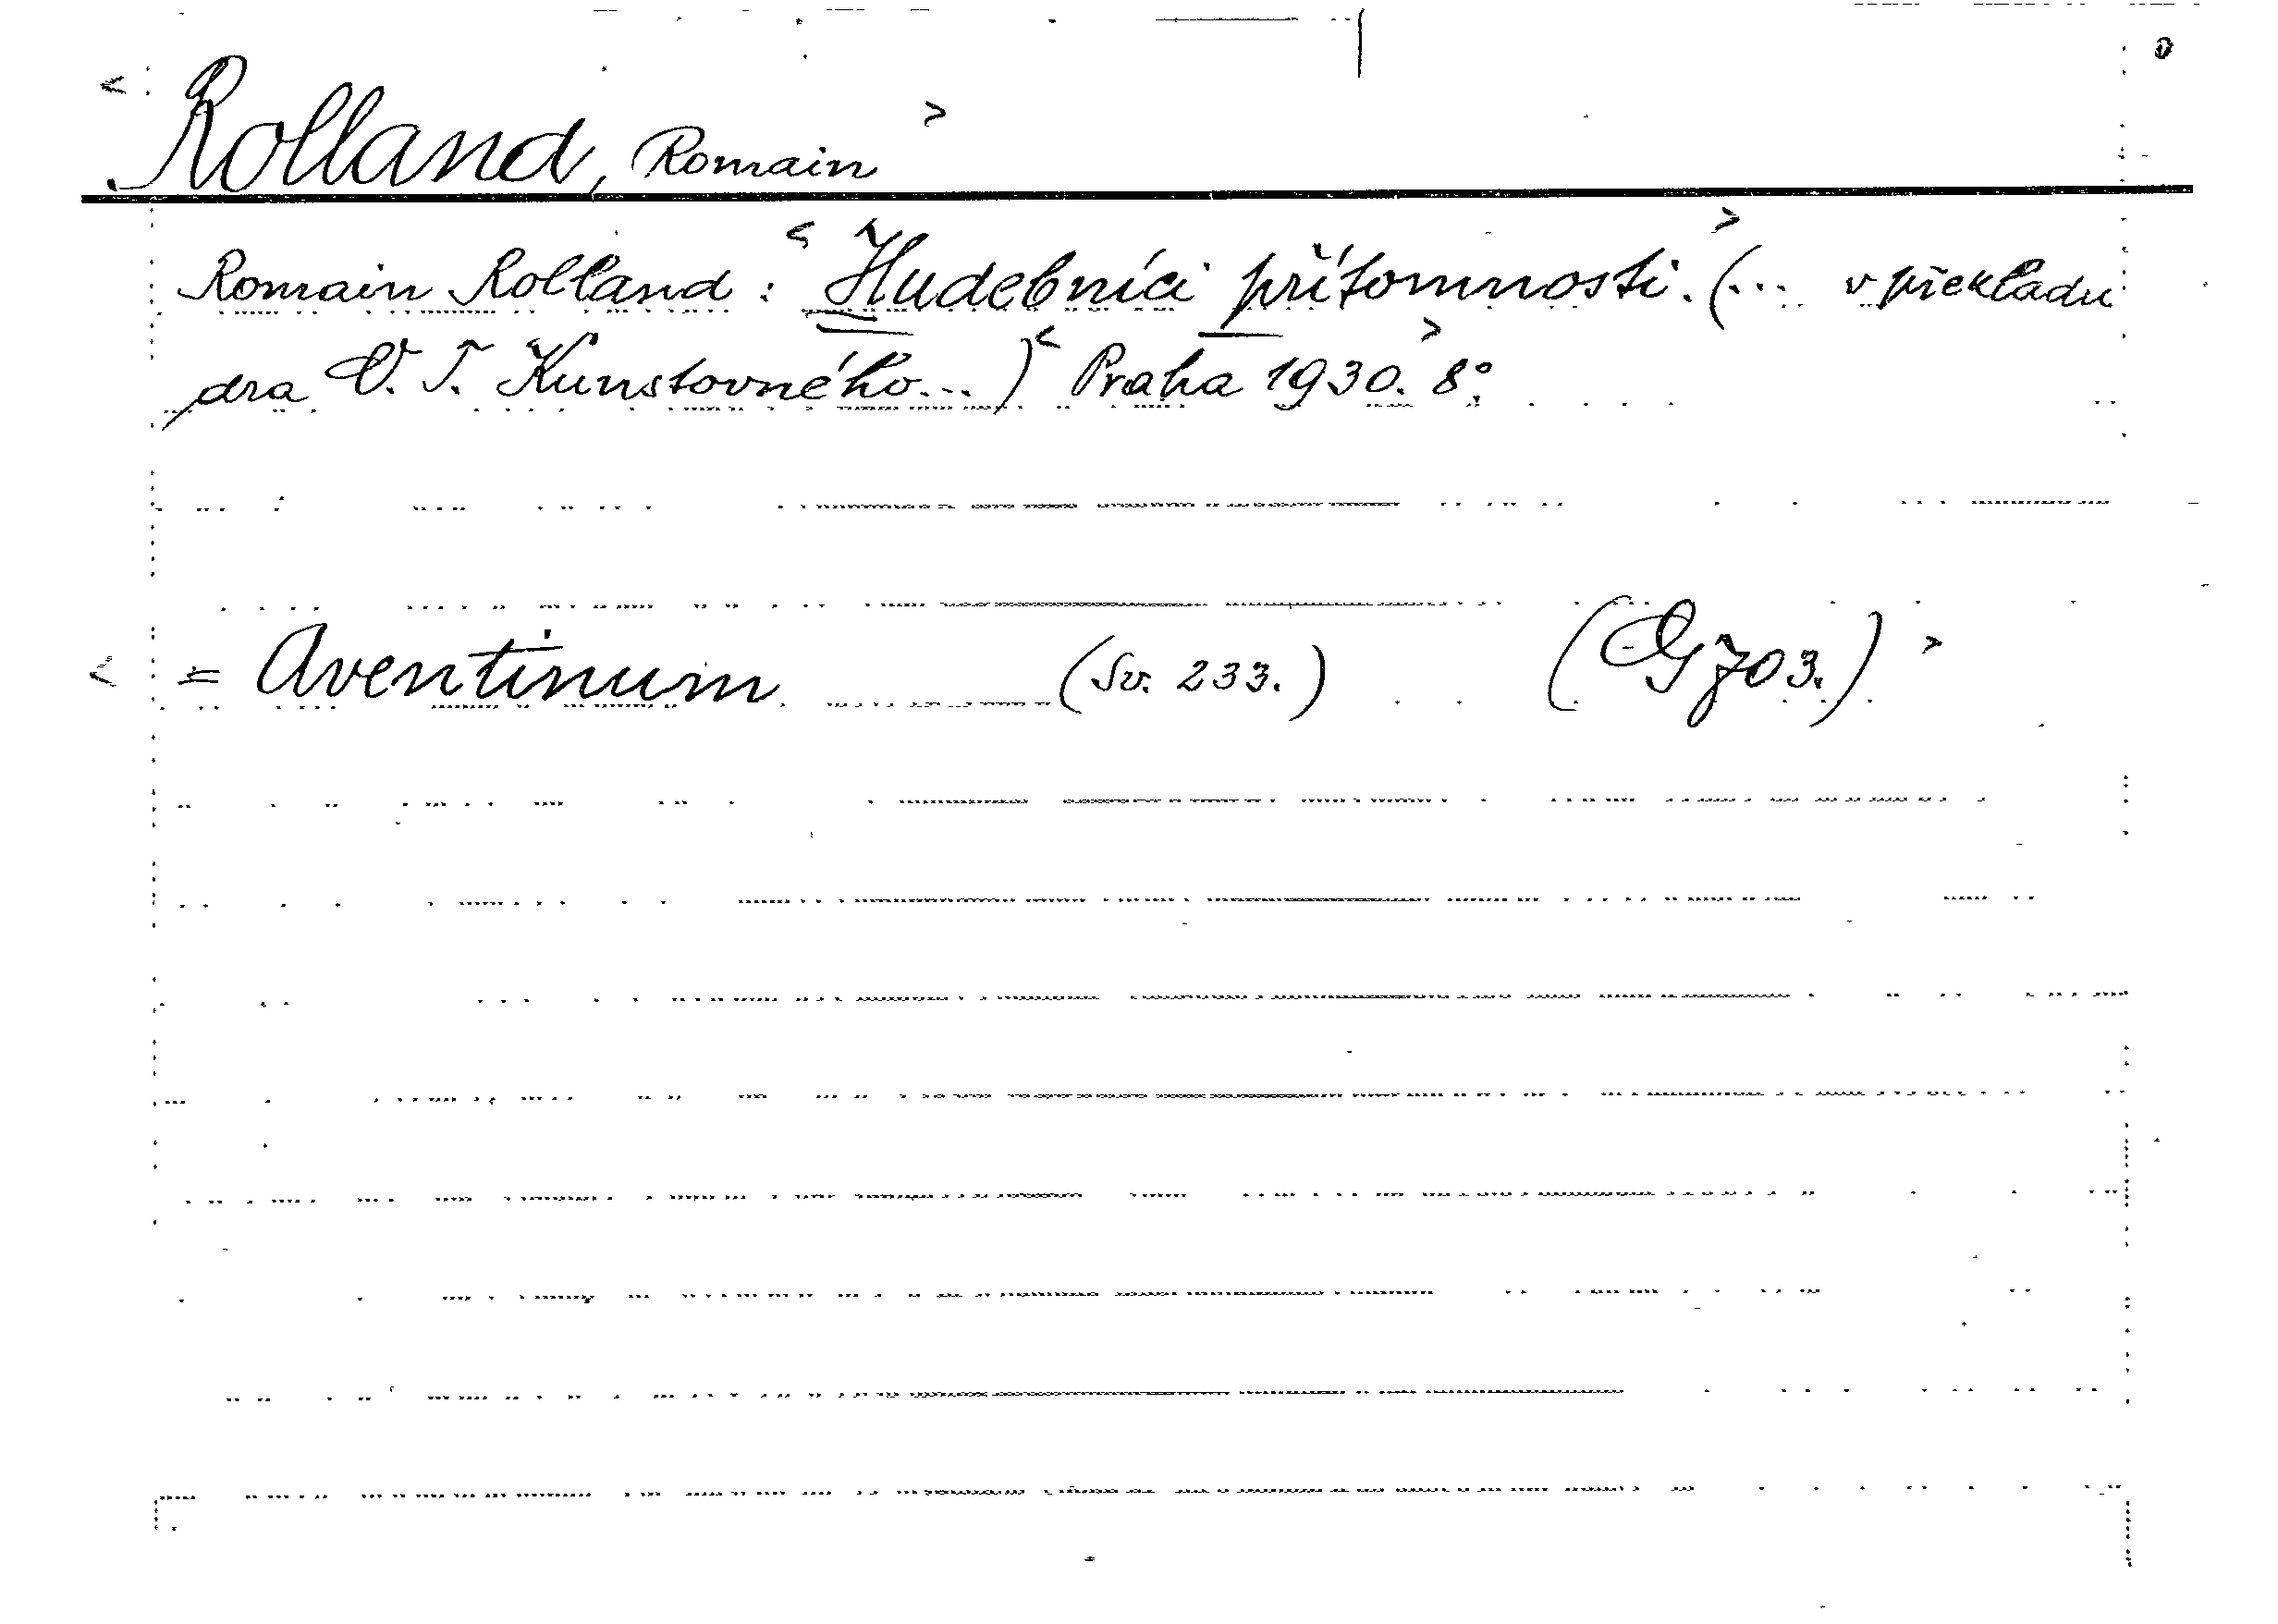 < Rolland, Romain >
Romain Rolland: <Hudebníci přítomnosti.> (... v překladu
dra V. T. Kunstovného...) <Praha 1930.> 8°.
< = Aventinum (Sv. 233.) (G 703.) >